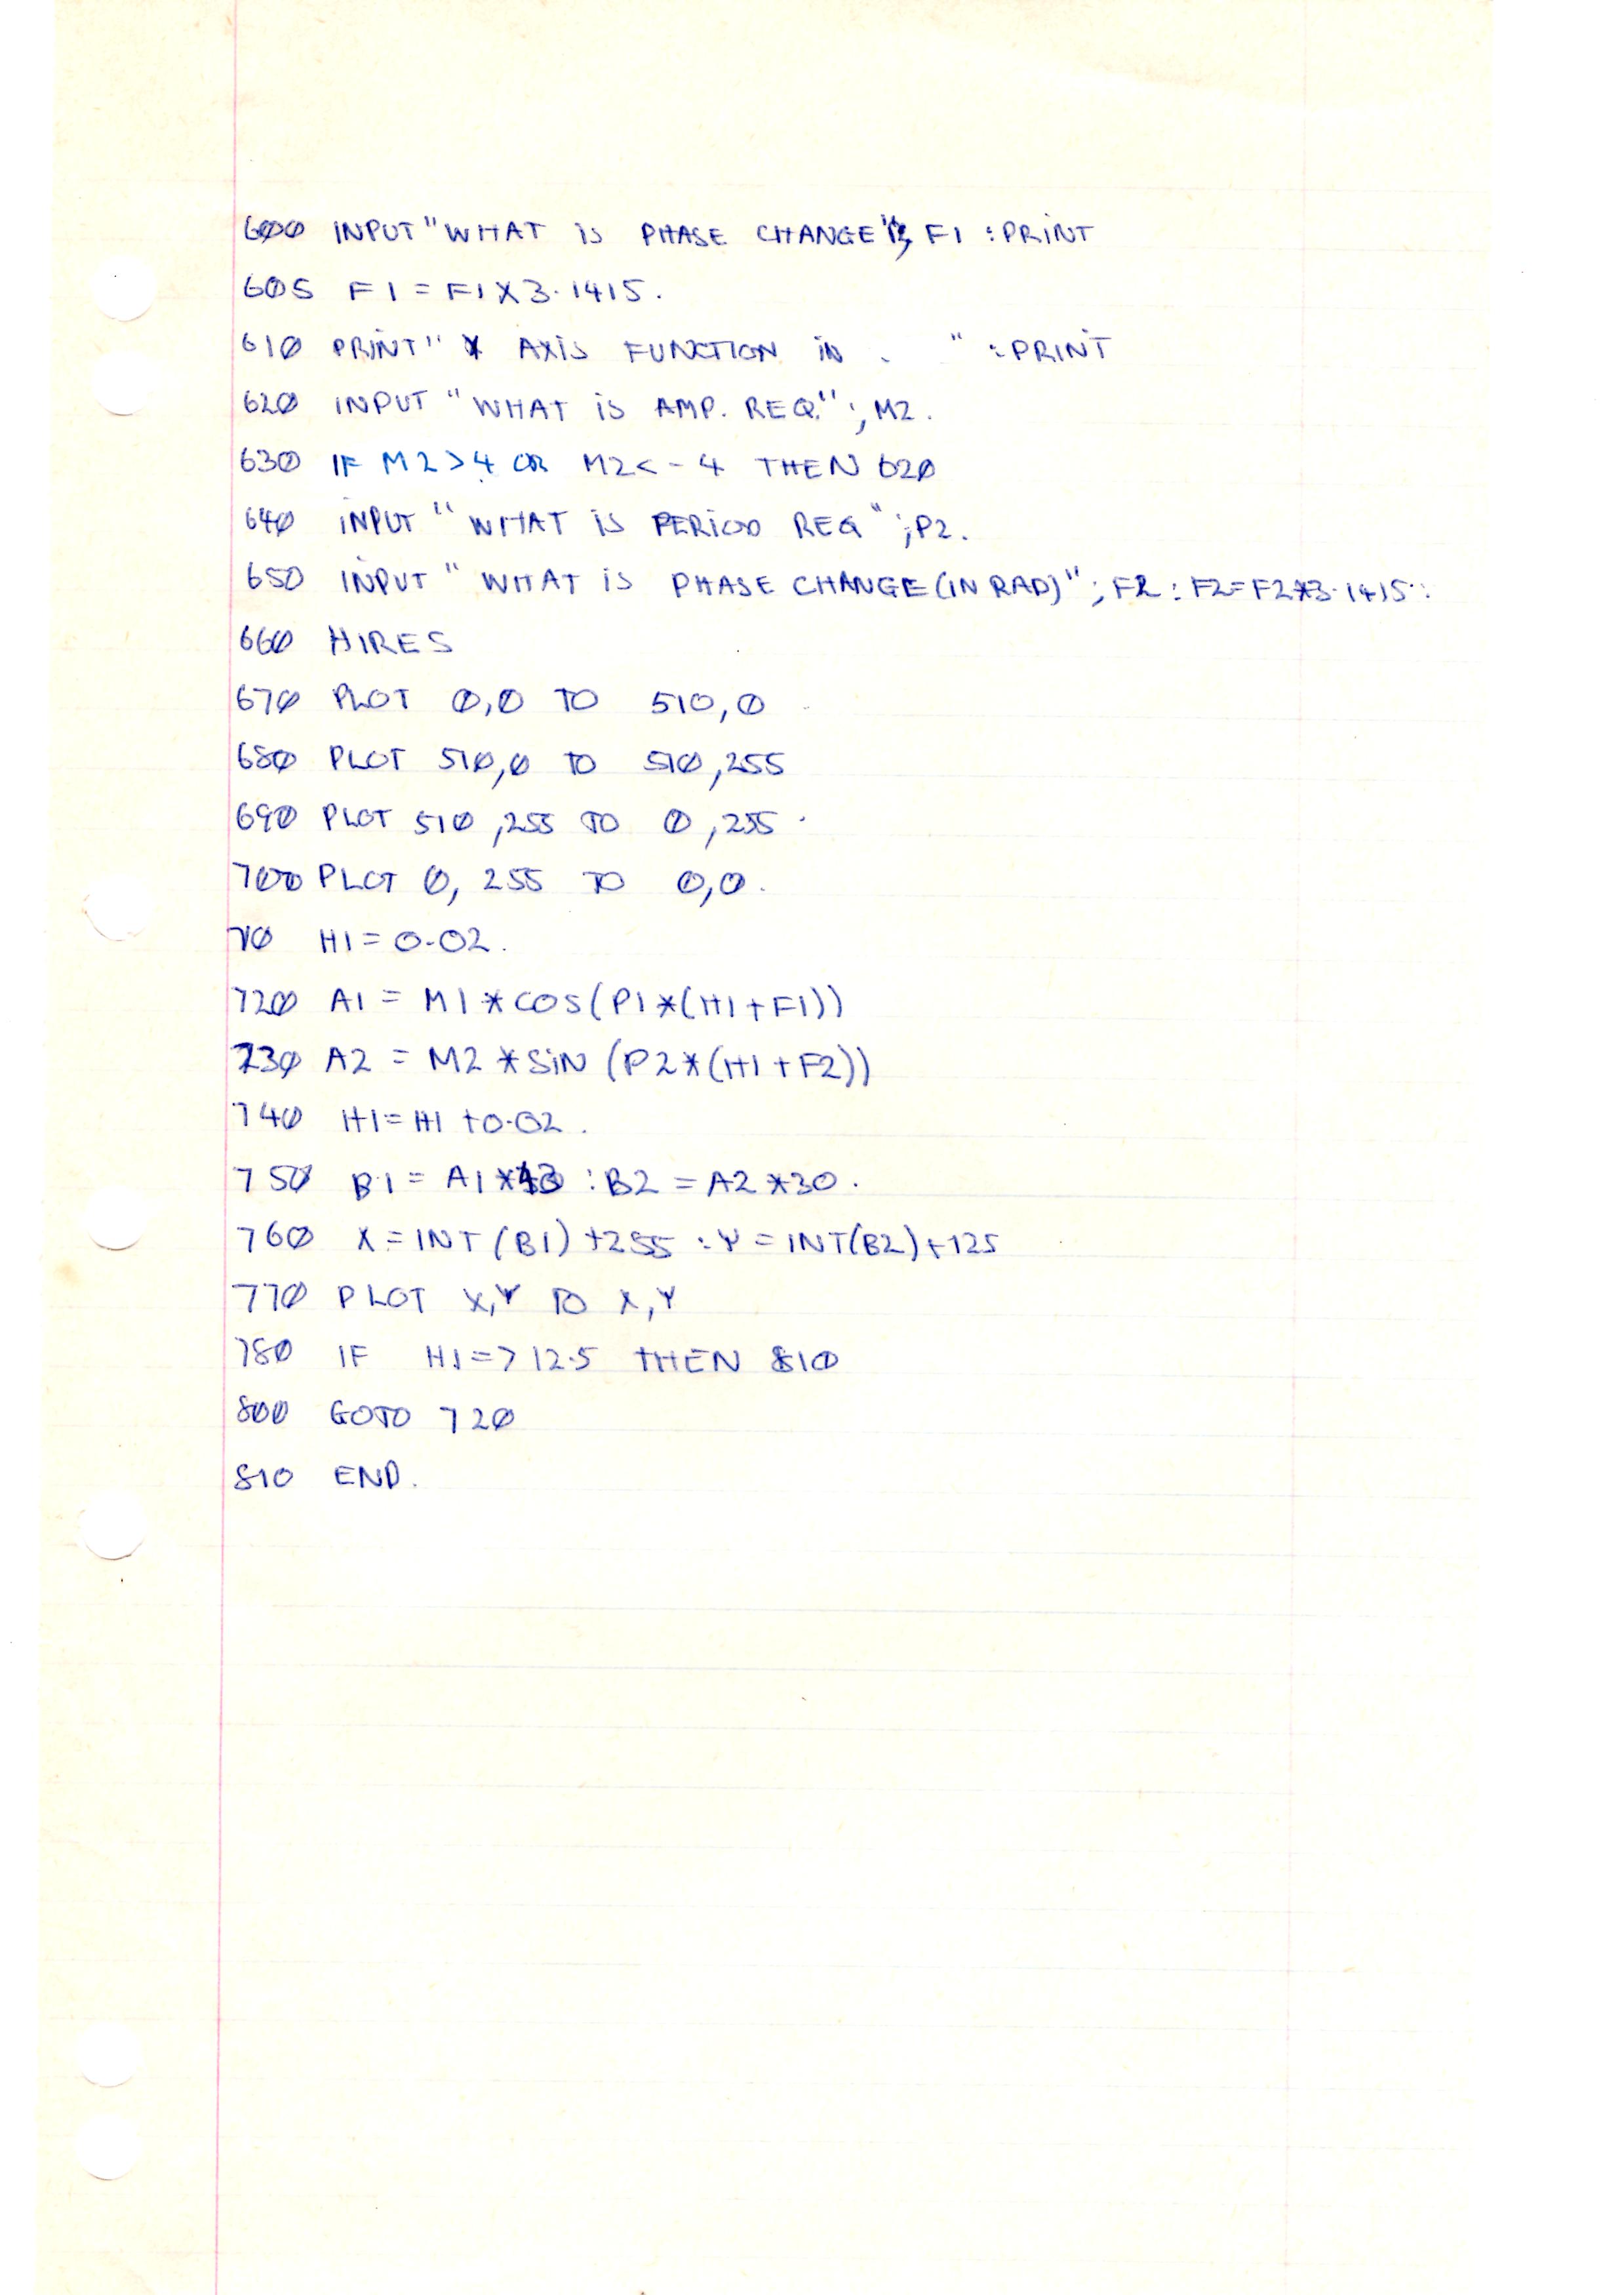 600 INPUT "WHAT IS PHASE CHANGE"; F1 : PRINT
605 F1 = F1 X 3.1415.
610 PRINT " AXIS FUNCTION IN . " : PRINT
620 INPUT "WHAT IS AMP. REQ."; M2.
630 IF M2 > 4 OR M2 < - 4 THEN 620
640 INPUT "WHAT IS PERIOD REQ"; P2.
650 INPUT "WHAT IS PHASE CHANGE (IN RAD)"; F2 : F2 = F2 * 3.1415:
660 HIRES
670 PLOT 0,0 TO 510,0
680 PLOT 510,0 TO 510,255
690 PLOT 510,255 TO 0,255.
700 PLOT 0,255 TO 0,0.
710 H1 = 0.02.
720 A1 = M1 * COS (P1 * (H1 + F1))
730 A2 = M2 * SIN (P2 * (H1 + F2))
740 H1 = H1 + 0.02.
750 B1 = A1 * : B2 = A2 * 30.
760 X = INT (B1) + 255 : Y = INT (B2) + 125
770 PLOT X,Y TO X,Y
780 IF H1 => 12.5 THEN 810
800 GOTO 720
810 END.